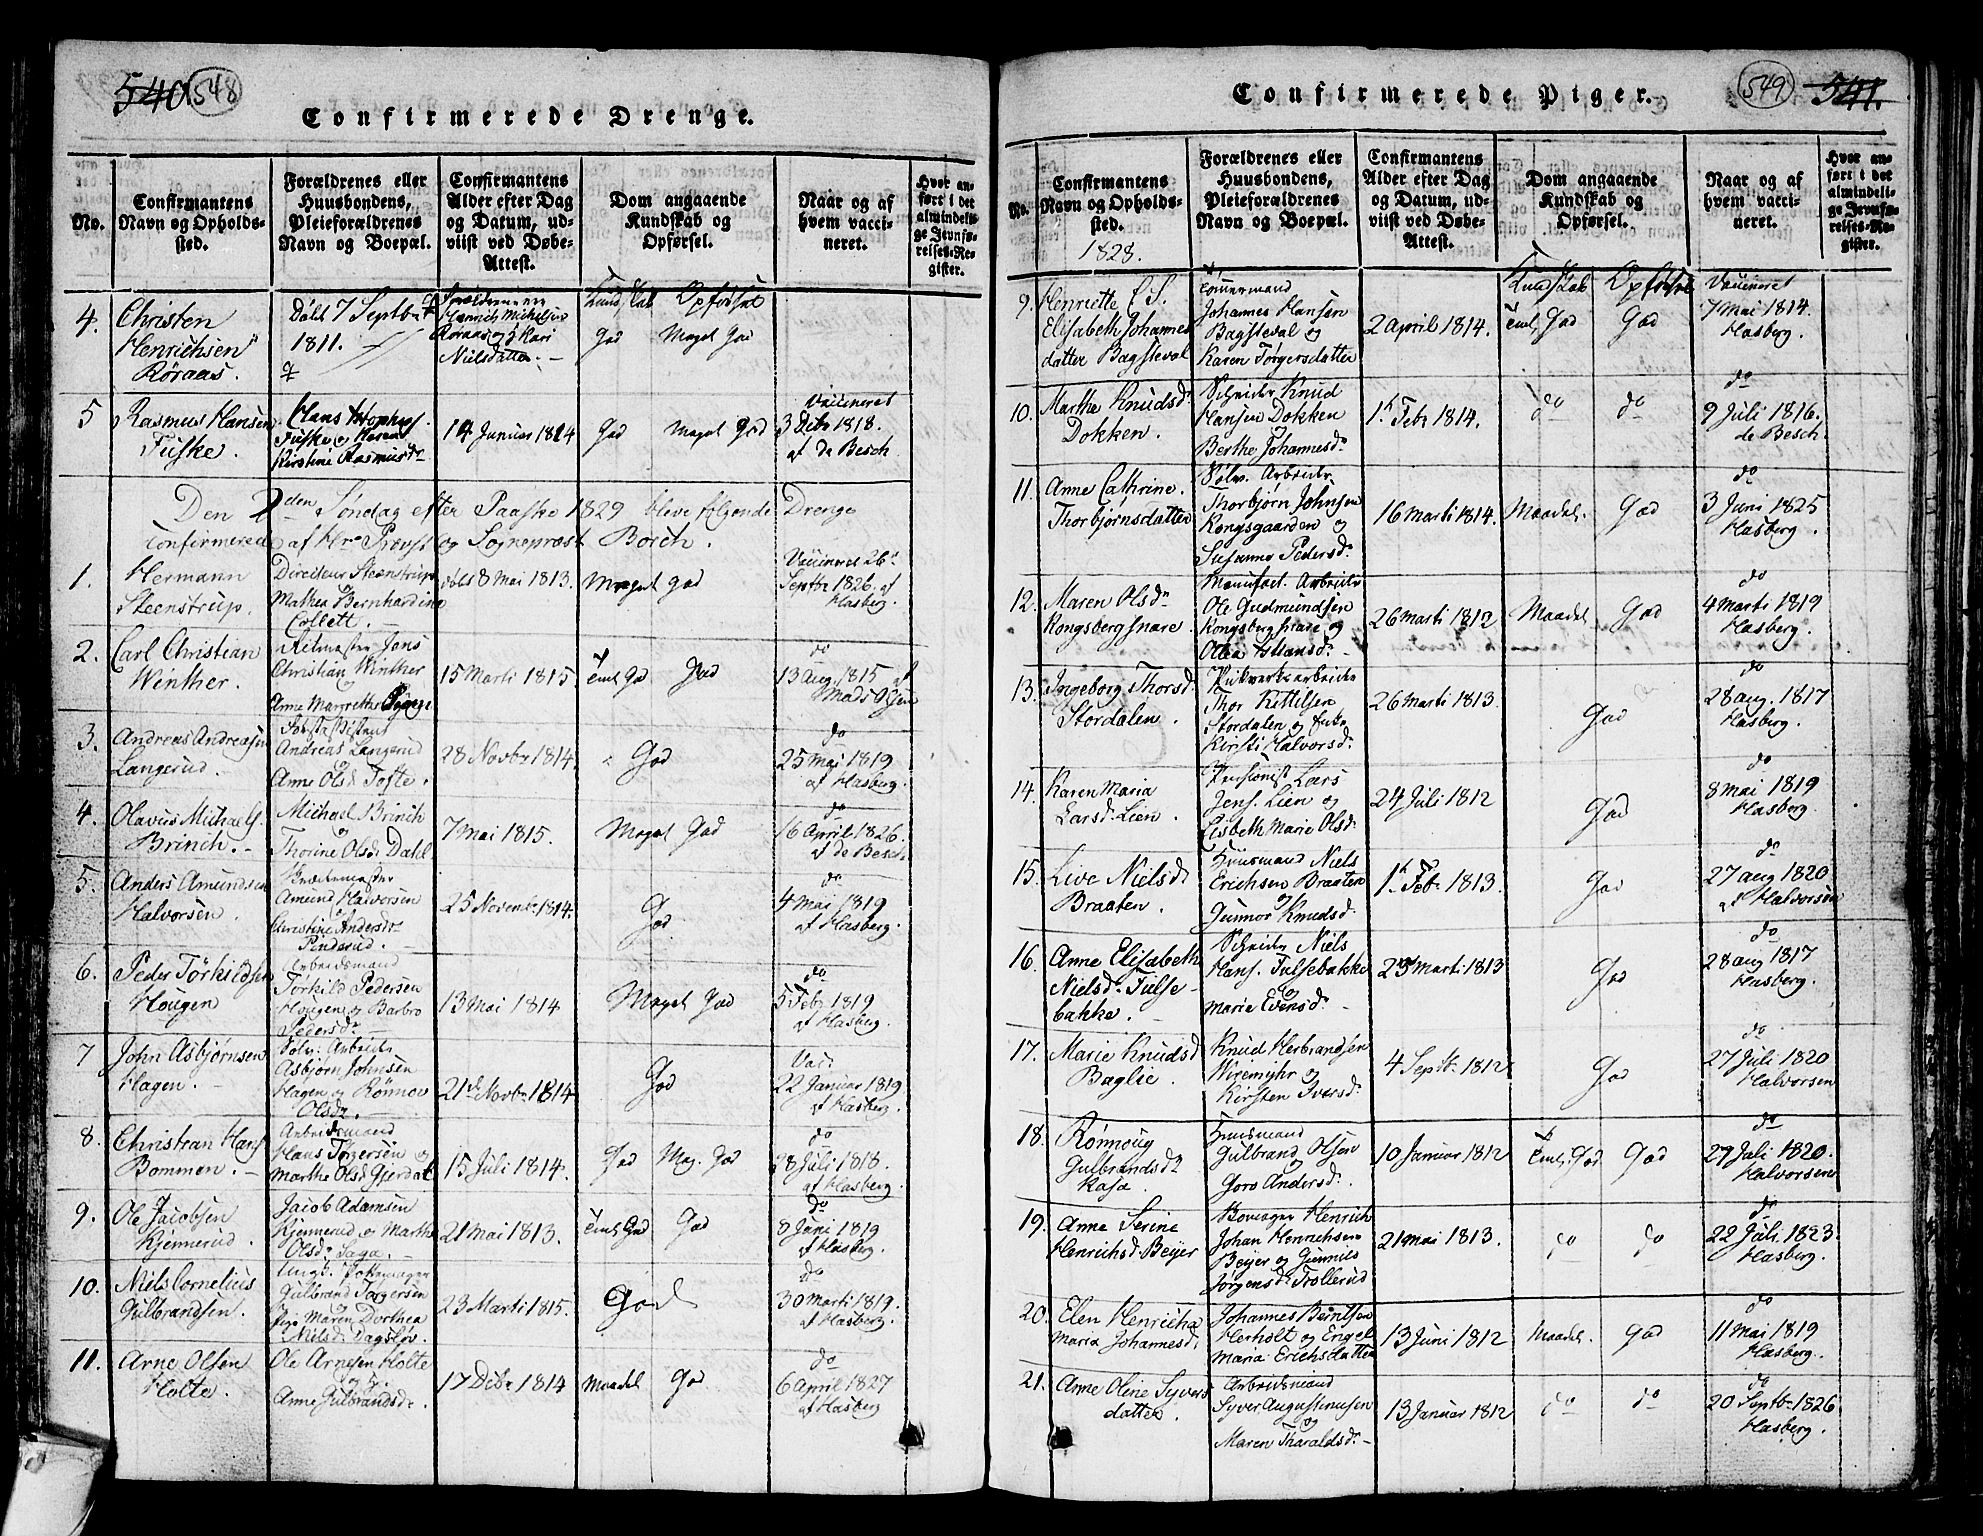 540 548
Confirmerede Drenge.
No.
Confirmantens
Navn og Opholds-
sted.
Forældrenes eller
Huusbondens,
Pleieforældrenes
Navn og Boepæl.
Confirmantens
Alder efter Dag
og Datum, ud-
viist ved Døbe-
Attest.
Dom angaaende
Kundskab og
Opførsel.
Naar og af
hvem vacci-
neret.
Hvor an-
ført i det
almindeli-
ge Jevnfø-
relses-Re-
gister.
Kundskab Opførsel
4. Christen
Henrichsen
Røraas.
Døbt 7 Septbr
1811.
Forældrene
Henrich Michelsen
Røraas og Kari
Nielsdatter.
God Meget God
5 Rasmus Hansen
Fuske.
Hans
Fuske og Karen
Kirstine Rasmusdr
14 Januar 1814
God Meget God
Vaccineret
3 Debr 1818.
af de Besch
Den 2den Søndag efter Paaske 1829 bleve følgende Drenge
confirmerede af Hr. Provst og Sognepræst Borch.
1. Hermann
Steenstrup.
Directeur Steenstrup
Mathea Bernhardine
Collett.
døbt 8 Mai 1813.
Meget god
Vaccineret 26
Septbr 1826 af
Hasberg.
2. Carl Christian
Winther.
Ritmester Jens
Christian Winther
og
Anne Margrethe
15 Marti 1815.
Teml. God God
do
13 Aug. 1815 af
Mads Olsen
3. Andreas Andreasen
Langerud.
Andreas Langerud
og
Anne Olsd. Tofte.
28 Novbr 1814.
God
do
25 Mai 1819
af Hasberg.
4. Olavus Michaels.
Brinch.
Michael Brinch
og
Thorine Olsd. Dahl
7 Mai 1815.
Meget God
do
16 April 1826.
af de Besch.
5. Anders Amundsen
Halvorsen.
Amund Halvorsen
og
Christine Andersdr
Pinderud.
25 Novembr 1814.
God
do
4 Mai 1819
af Hasberg.
6. Peder Törkildsen
Hougen
Arbeidsmand
Torkild Pedersen
Hougen og Barbro
Pedersdr
13 Mai 1814
Meget God
do
5 Febr 1819
af Hasberg.
7 John Asbjørnsen
Hagen.
Sølv. Arbeider
Asbjørn Johnsen
Hagen og Rønnov
Olsdr.
21de Novbr 1814
God
Vac.
22 Januar 1819
af Hasberg.
8. Christian Hans.
Bommen.
Arbeidsmand
Hans Törgersen og
Marthe Olsd. Gjerdal
15 Juli 1814.
God Meg. God
do
28 Juli 1818.
af Hasberg.
9. Ole Jacobsen
Kjennerud.
Jacob Adamsen
Kjennerud og Marthe
Olsdr Saga.
21 Mai 1813.
Teml. God God
do
8 Juni 1819
af Hasberg.
10. Niels Cornelius
Gulbrandsen.
Gulbrand Törgersen
og
Pige Maren Dorthea
Nilsd. Dagsløv.
23 Marti 1815.
God
do
30 Marti 1819.
af Hasberg.
11. Arne Olsen
Holte.
Ole Arnesen Holte
og
Anne Gulbrandsd.
17 Debr 1814
Maadel. God
do
6 April 1827
af Hasberg
549 541.
Confirmerede Piger.
No.
Confirmantens
Navn og Opholds-
sted.
1828.
Forældrenes eller
Huusbondens,
Pleieforældrenes
Navn og Boepæl.
Confirmantens
Alder efter Dag
og Datum, ud-
viist ved Døbe-
Attest.
Dom angaaende
Kundskab og
Opførsel.
Naar og af
hvem vacci-
neret.
Hvor an-
ført i det
almindeli-
ge Jevnfø-
relses-Re-
gister.
Kundskab Opførsel
9. Henriette C. S.
Elisabeth Johannes
datter Bagsteval
Tömmermand
Johannes Hansen
Bagsteval og
Karen Törgersdatter
2 April 1814.
Teml. God God
Vaccineret
7 Mai 1814.
Hasberg.
10. Marthe Knudsdr
Dokken.
Schneider Knud
Hansen Dokken
og
Berthe Johannesdr
1. Febr 1814.
do do
do
9 Juli 1816.
de Besch.
11. Anne Cathrine.
Thorbjørnsdatter
Sølv. Arbeider
Thorbjørn Johnsen
Kongsgaarden og
Susanna Pedersdr
16 Marti 1814.
Maadel. God
do
3 Juni 1825
Hasberg.
12. Maren Olsdr
Kongsbergsnare.
Manufact. Arbeider
Ole Gudmundsen
Kongsbergsnare og
26 Marti 1812
Maadel God
do
4 Marti 1819
Hasberg.
13. Ingeborg Thorsd.
Stordalen.
Pukværksarbeider
Thor Kittilsen
Stordalen og
Kirsti Halvorsdr
26 Marti 1813.
God
do
28 Aug. 1817
Hasberg.
14. Karen Maria
Larsd. Lien.
Pensionist Lars
Jens. Lien og
Lisbeth Marie Olsdr
24 Juli 1812
God
do
8 Mai 1819
Hasberg.
15. Live Nielsdr
Braaten.
Huusmand Niels
Erichsen Braaten
og
Gunnor Knudsdr
1. Febr 1813.
God
do
27 Aug 1820
af Halvorsen
16. Anne Elisabeth
Nielsdr Tulse-
bakke.
Schneider Niels
Hans. Tulsebakke
og
Marie Evensdr
23 Marti 1813
God
do
28 Aug 1817
Hasberg.
17. Marie Knudsd
Baglie.
Knud Herbrandsen
Wiremyhr og
Kirsten Iversdr
4 Septbr 1812
God
do
27 Juli 1820
Halvorsen
18. Rønnoug
Gulbrandsdr
Kasa.
Huusmand
Gulbrand Olsen
og
Goro Andersdr.
10 Januar 1812
Teml. God God
do
27 Juli 1820.
Halvorsen
19. Anne Serine
Henrichsd. Beyer
Henrich
Johan Henrichsen
Beyer og Gunnild
Jørgensdr Trollerud
21 Mai 1813.
do do
do
22 Juli 1823.
Hasberg.
20. Elen Henricha
Maria Johannesd.
Johannes Berntsen
Herholt og Engel
Maria Erichsdatter
13 Juni 1812
Maadel. God
do
11 Mai 1819
Hasberg.
21. Anne Oline Syvers
datter.
Arbeidsmand
Syver Augustinusen
og
Maren Tharaldsdr
13 Januar 1812
do do
do
20 Septbr 1826
Hasberg.